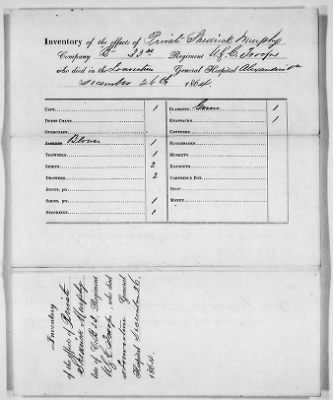 Inventory of the effects of Privat Shedrick Murphy
Company "B" 23rd Regiment U.S.C. Troops
who died in the L'ouverture General Hospital Alexandria Va
December 26th 1864.
CAPS, 1
DRESS COATS,
OVERCOATS,
JACKETS Blouse 1
TROWSERS 1
SHIRTS 2
DRAWERS 2
BOOTS, prs
SHOES, prs 1
STOCKINGS 1
BLANKETS Gum 1
KNAPSACKS 1
CANTEENS
HAVERSACKS
MUSKETS
BAYONETS
CARTRIDGE BOX
BELT
MONEY
Inventory
of the effects of Privat
Shedrick Murphy
late of Co. B 23 Regiment
U.S.C. Troops who died
L'ouverture General
Hospital December 26.
1864.